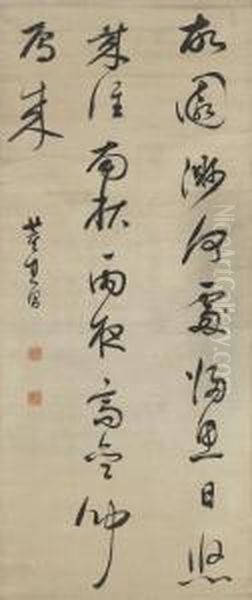 故園渺何處歸思日悠
哉淮南秋雨夜高齋聞
雁來
董其昌
NiceArtGallery.com